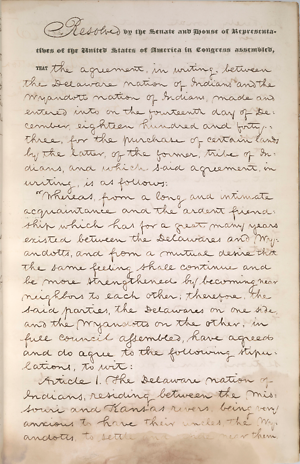 Resolved by the Senate and House of Representa-
tives of the United States of America in Congress assembled,
THAT the agreement, in writing, between
the Delaware nation of Indians and the
Wyandott nation of Indians, made and
entered into on the fourteenth day of De-
cember eighteen hundred and forty-
three, for the purchase of certain lands
by the latter, of the former, tribe of In-
dians, and which said agreement, in
writing, is as follows:
"Whereas, from a long and intimate
acquaintance and the ardent friend-
ship which has for a great many years
existed between the Delawares and Wy-
andotts, and from a mutual desire that
the same feeling shall continue and
be more strengthened by becoming near
neighbors to each other; therefore, the
said parties, the Delawares on one side
and the Wyandotts on the other, in
full council assembled, have agreed
and do agree to the following stipu-
lations, to wit:
Article 1. The Delaware nation of
Indians, residing between the Mis-
souri and Kansas rivers, being very
anxious to have their uncles the Wy-
andotts to settle and near them